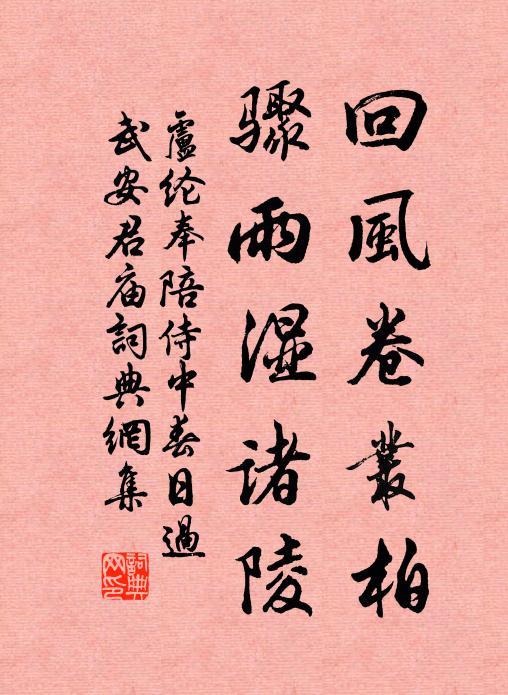 回風卷叢柏
驟雨湿诸陵
盧纶奉陪侍中春日過
武安君庙詞典網集
詞典网印